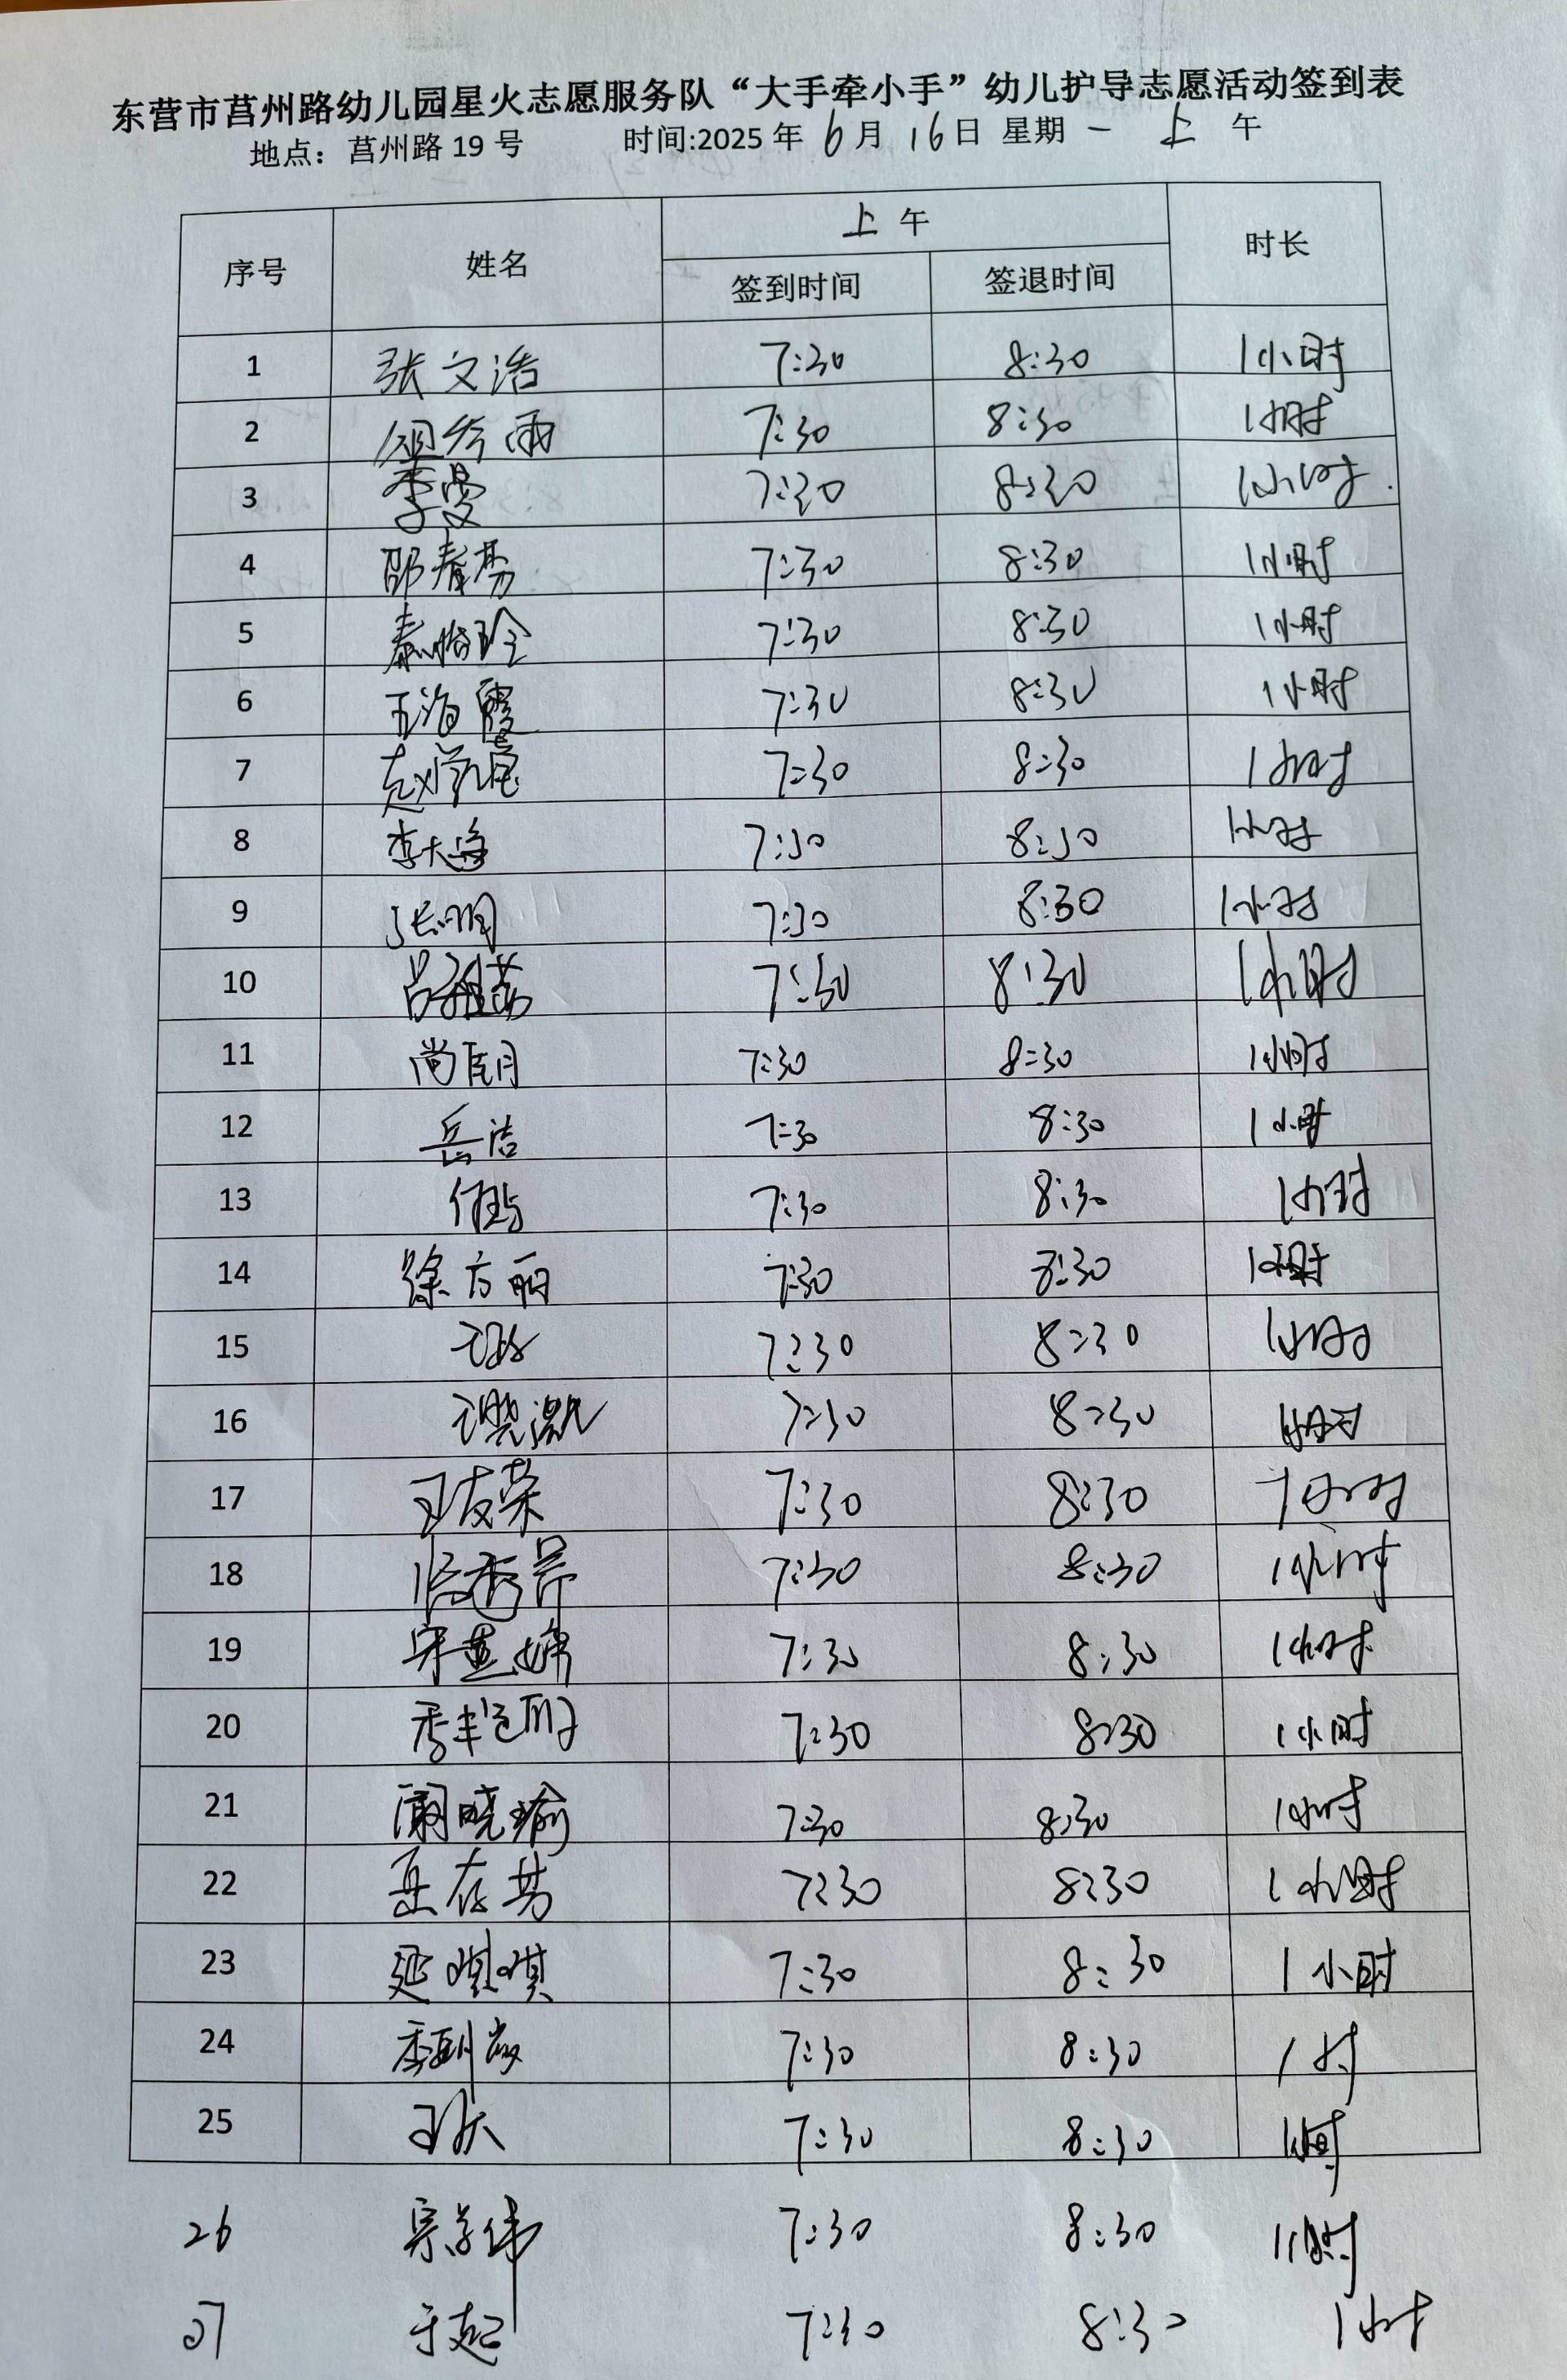 东营市莒州路幼儿园星火志愿服务队“大手牵小手”幼儿护导志愿活动签到表
地点：莒州路 19 号 时间:2025 年 6 月 16 日 星期 一 上 午
序号 姓名 上 午 时长
签到时间 签退时间
1 张文浩 7:30 8:30 1小时
2 7:30 8:30 1小时
3 李曼 7:30 8:30 1小时
4 邵春秀 7:30 8:30 1小时
5 秦 玲 7:30 8:30 1小时
6 王海霞 7:30 8:30 1小时
7 赵 7:30 8:30 1小时
8 李大海 7:30 8:30 1小时
9 张明 7:30 8:30 1小时
10 吕 茹 7:30 8:30 1小时
11 尚 7:30 8:30 1小时
12 岳洁 7:30 8:30 1小时
13 7:30 8:30 1小时
14 徐方丽 7:30 8:30 1小时
15 7:30 8:30 1小时
16 7:30 8:30 1小时
17 王友荣 7:30 8:30 1小时
18 秀芹 7:30 8:30 1小时
19 7:30 8:30 1小时
20 李艳丽 7:30 8:30 1小时
21 阚晓瑜 7:30 8:30 1小时
22 岳存芳 7:30 8:30 1小时
23 延琪琪 7:30 8:30 1小时
24 7:30 8:30 1小时
25 7:30 8:30 1小时
26 宗学伟 7:30 8:30 1小时
27 于起 7:30 8:30 1小时